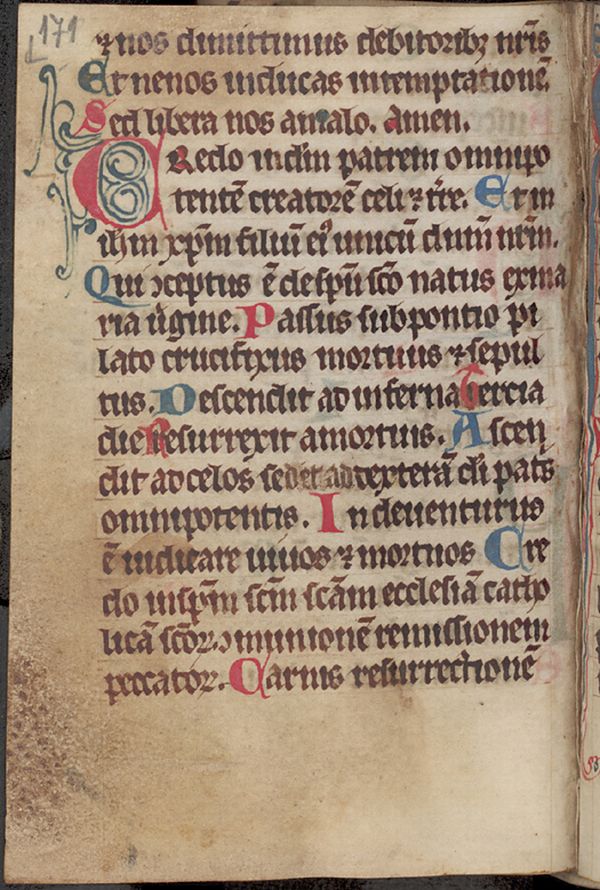 171
⁊ nos dimittimus debitoribꝫ nr̄is
Et ne nos inducas in temptationē
Sed libera nos a malo. Amen.
Credo in dm̄ patrem omnipo
tentē creatorē celi ⁊ t̄re. Et in
ih̄m xp̄m filiū ei᷒ unicū dn̄m nr̄m.
Qui ꝯceptus ē de sp̄u sc̄o natus ex ma
ria ūgine. Passus sub pontio pi
lato crucifixus mortuus ⁊ sepul
tus. Descendit ad inferna tercia
die Resurrexit a mortuis. Ascen
dit ad celos sedet ad dexterā dī pat̄s
omnipotentis. Inde uenturus
ē iudicare uiuos ⁊ mortuos Cre
do in sp̄m sc̄m sc̄am ecclesiā catho
licā sc̄oꝝ ꝯmunionē remissionem
peccatoꝝ. Carnis resurrectionē